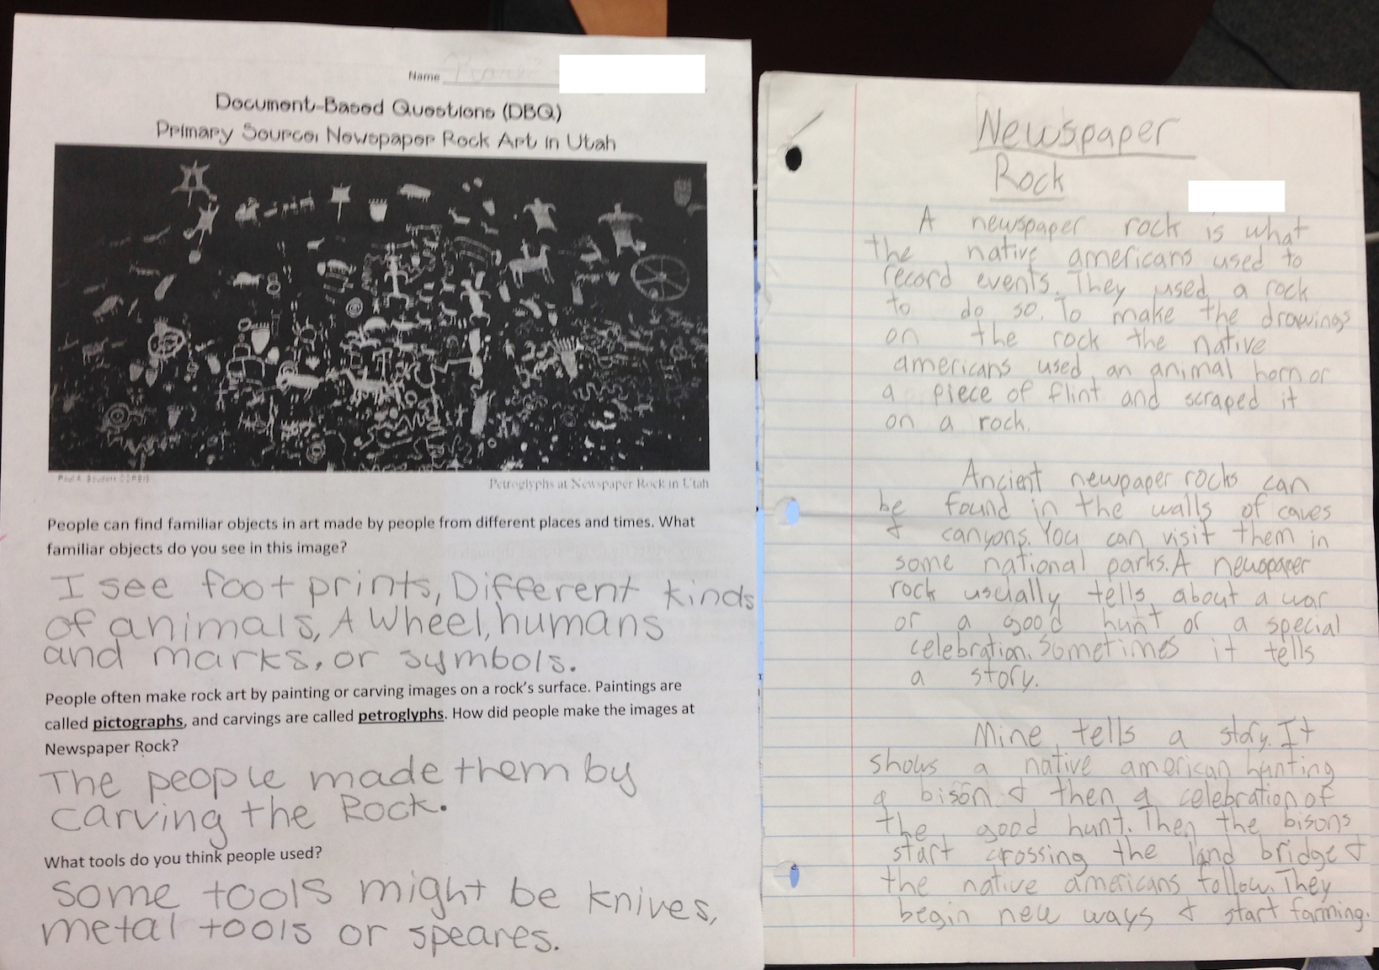 Name
Document-Based Questions (DBQ)
Primary Source: Newspaper Rock Art in Utah
Petroglyphs at Newspaper Rock in Utah
People can find familiar objects in art made by people from different places and times. What
familiar objects do you see in this image?
I see foot prints, Different kinds
of animals, A Wheel, humans
and marks, or symbols.
People often make rock art by painting or carving images on a rock's surface. Paintings are
called pictographs, and carvings are called petroglyphs. How did people make the images at
Newspaper Rock?
The people made them by
carving the Rock.
What tools do you think people used?
Some tools might be knives,
metal tools or speares.
Newspaper
Rock
A newspaper rock is what
the native americans used to
record events. They used a rock
to do so. To make the drawings
on the rock the native
americans used an animal horn or
a piece of flint and scraped it
on a rock.
Ancient newpaper rocks can
be found in the walls of caves
& canyons. You can visit them in
some national parks. A newspaper
rock usually tells about a war
or a good hunt or a special
celebration. Sometimes it tells
a story.
Mine tells a story. It
shows a native american hunting
a bison & then a celebration of
the good hunt. Then the bisons
start crossing the land bridge &
the native americans follow. They
begin new ways & start farming.